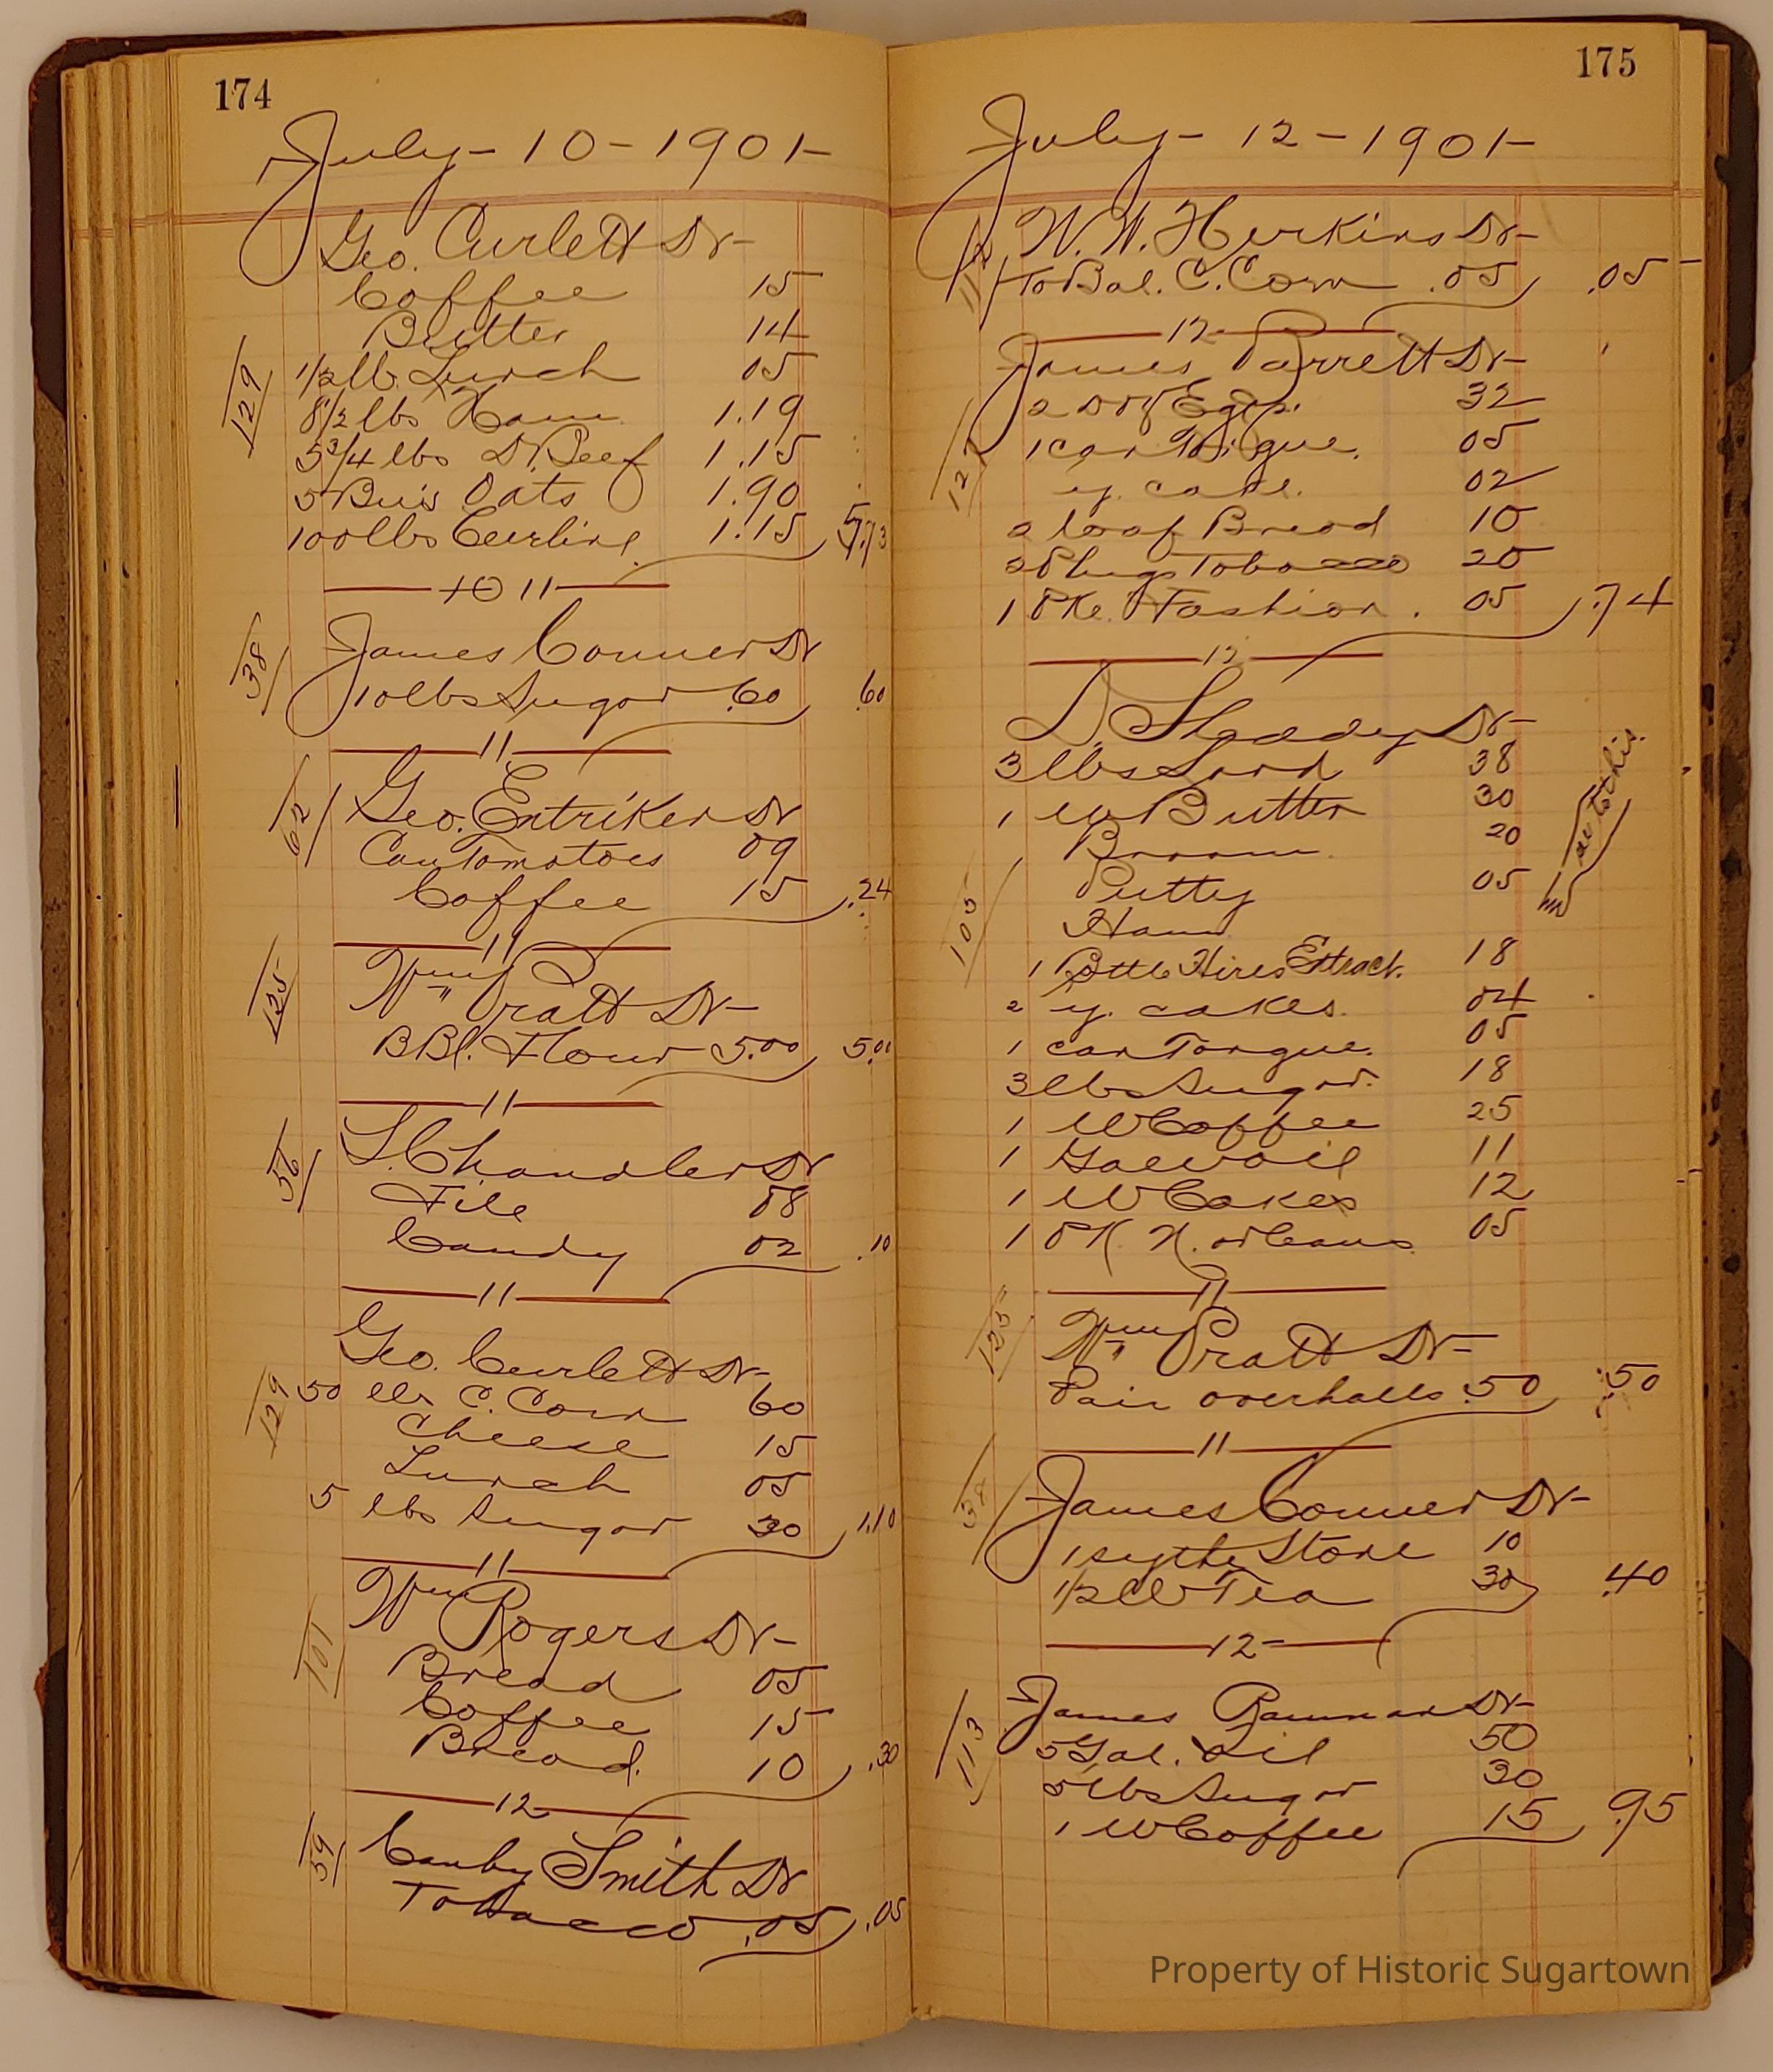 174
July - 10 - 1901 -
Geo. Curlett Dr -
Coffee 15
Butter 14
129
1/2 lb Lunch 05
8 1/2 lbs Ham 1.19
5 3/4 lbs D. Beef 1.15
5 Bus Oats 1.90
100 lbs 1.15 5.73
10 11
38
James Conner Dr
10 lbs Sugar .60 .60
11
62
Geo. Entriken Dr
Can Tomatoes 09
Coffee 15 .24
11
125
Wm Pratt Dr -
BBl. Flour 5.00 5.00
11
56
S. Chandler Dr
File 08
Candy 02 .10
11
Geo. Curlett Dr -
129
50 lbs C. Corn 60
Cheese 15
Lunch 05
5 lbs Sugar 30 1.10
11
Wm Rogers Dr -
101
Bread 05
Coffee 15
Bread. 10 .30
12
59
Canby Smith Dr
Tobacco .05 .05
175
July - 12 - 1901 -
W. W. Herkins Dr -
To Bal. C. Corn .05 .05
12
James Parrett Dr -
2 Doz Eggs. 32
1 can Tongue. 05
y. cake. 02
2 loaf Bread 10
2 Plugs Tobacco 20
1 Pke. Fashion . 05 .74
12
D. Shaddy Dr -
3 lbs Lard 38
1 lb Butter 30
Broom. 20
Putty 05
Ham
105
1 Bottle Hires Extract. 18
2 y. cakes. 04
1 can Tongue. 05
3 lbs Sugar. 18
1 lb Coffee 25
1 Gal C oil 11
1 lb Cakes 12
1 PK. N. orleans 05
11
125
Wm Pratt Dr -
Pair overhalls .50 .50
11
38
James Conner Dr -
1 scythe Stone 10
1/2 lb Tea 30 .40
12 -
113
James Dr -
5 Gal. Oil 50
5 lbs Sugar 30
1 lb Coffee 15 .95
Property of Historic Sugartown